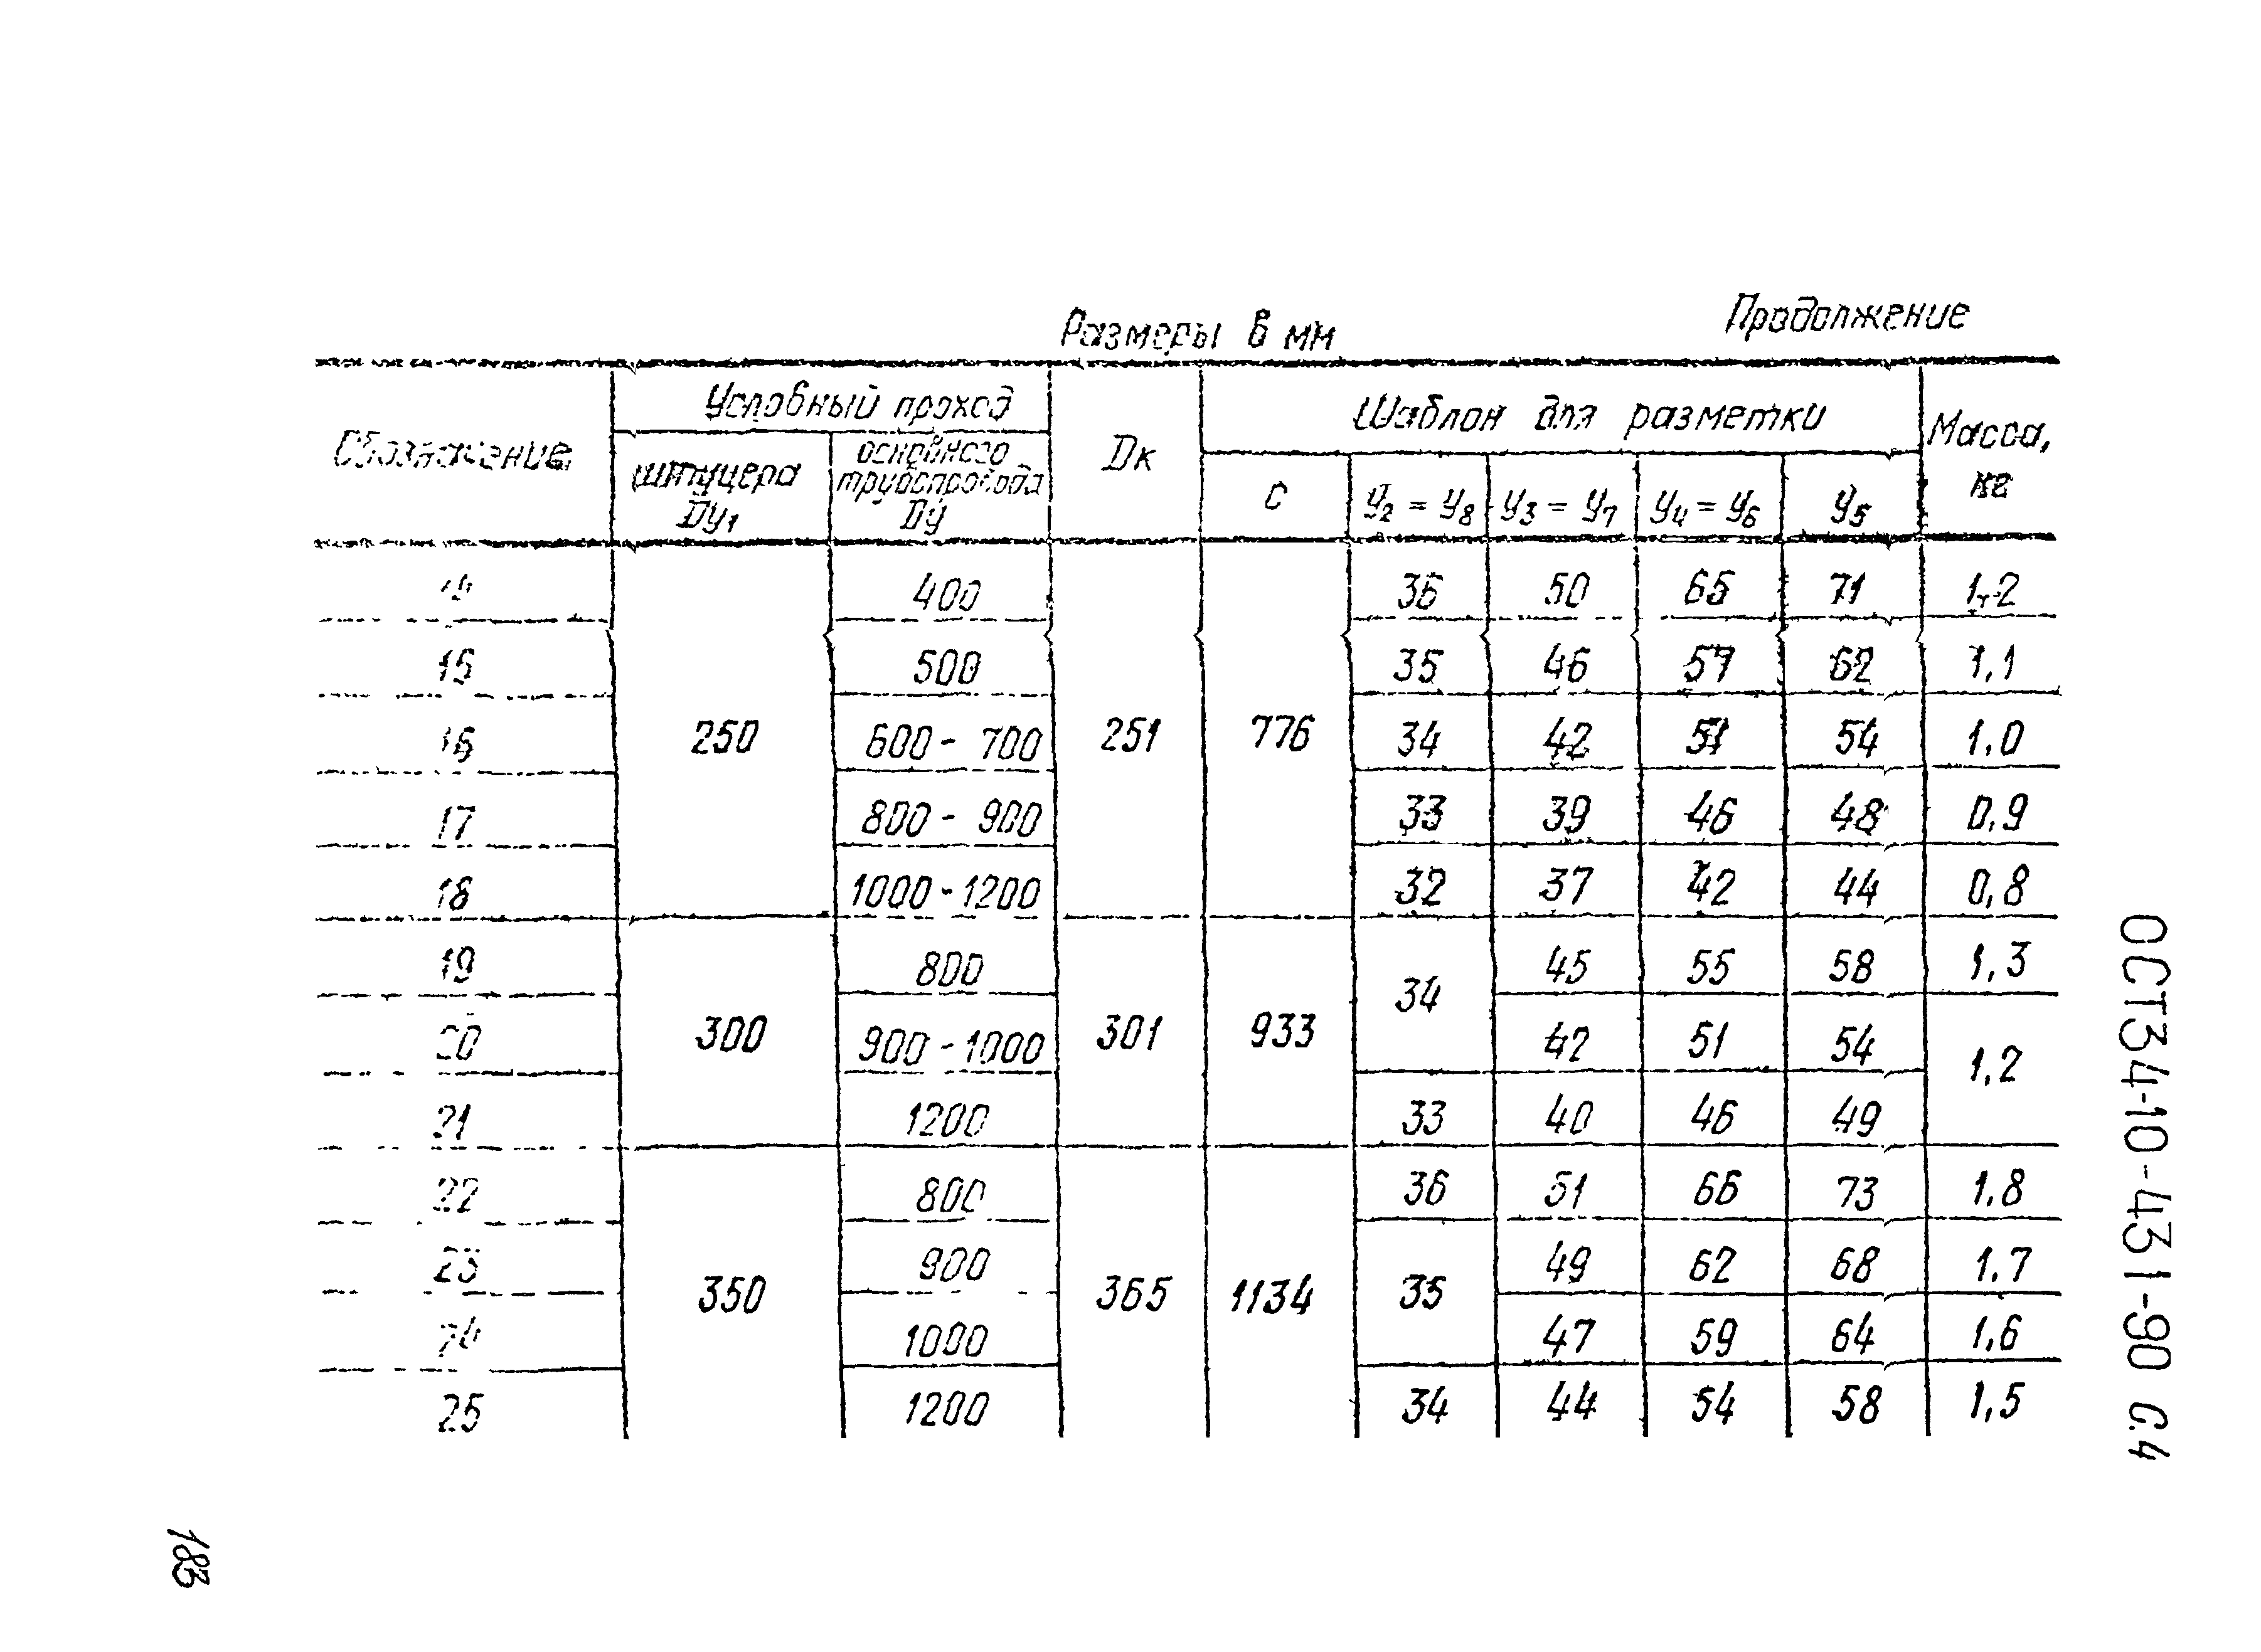 Продолжение
Размеры в мм
Обозначение
Условный проход
штуцера Dу₁
основного трубопровода Dу
Dк
Шаблон для разметки
С
У₂ = У₈
У₃ = У₇
У₄ = У₆
У₅
Масса, кг
400 36 50 65 71 1,2
15 500 35 46 57 62 1,1
16 250 600 - 700 251 776 34 42 51 54 1,0
17 800 - 900 33 39 46 48 0,9
18 1000 - 1200 32 37 42 44 0,8
19 800 34 45 55 58 1,3
20 300 900 - 1000 301 933 42 51 54 1,2
21 1200 33 40 46 49
22 800 36 51 66 73 1,8
23 350 900 365 1134 35 49 62 68 1,7
24 1000 47 59 64 1,6
25 1200 34 44 54 58 1,5
ОСТ34-10-431-90 С.4
183